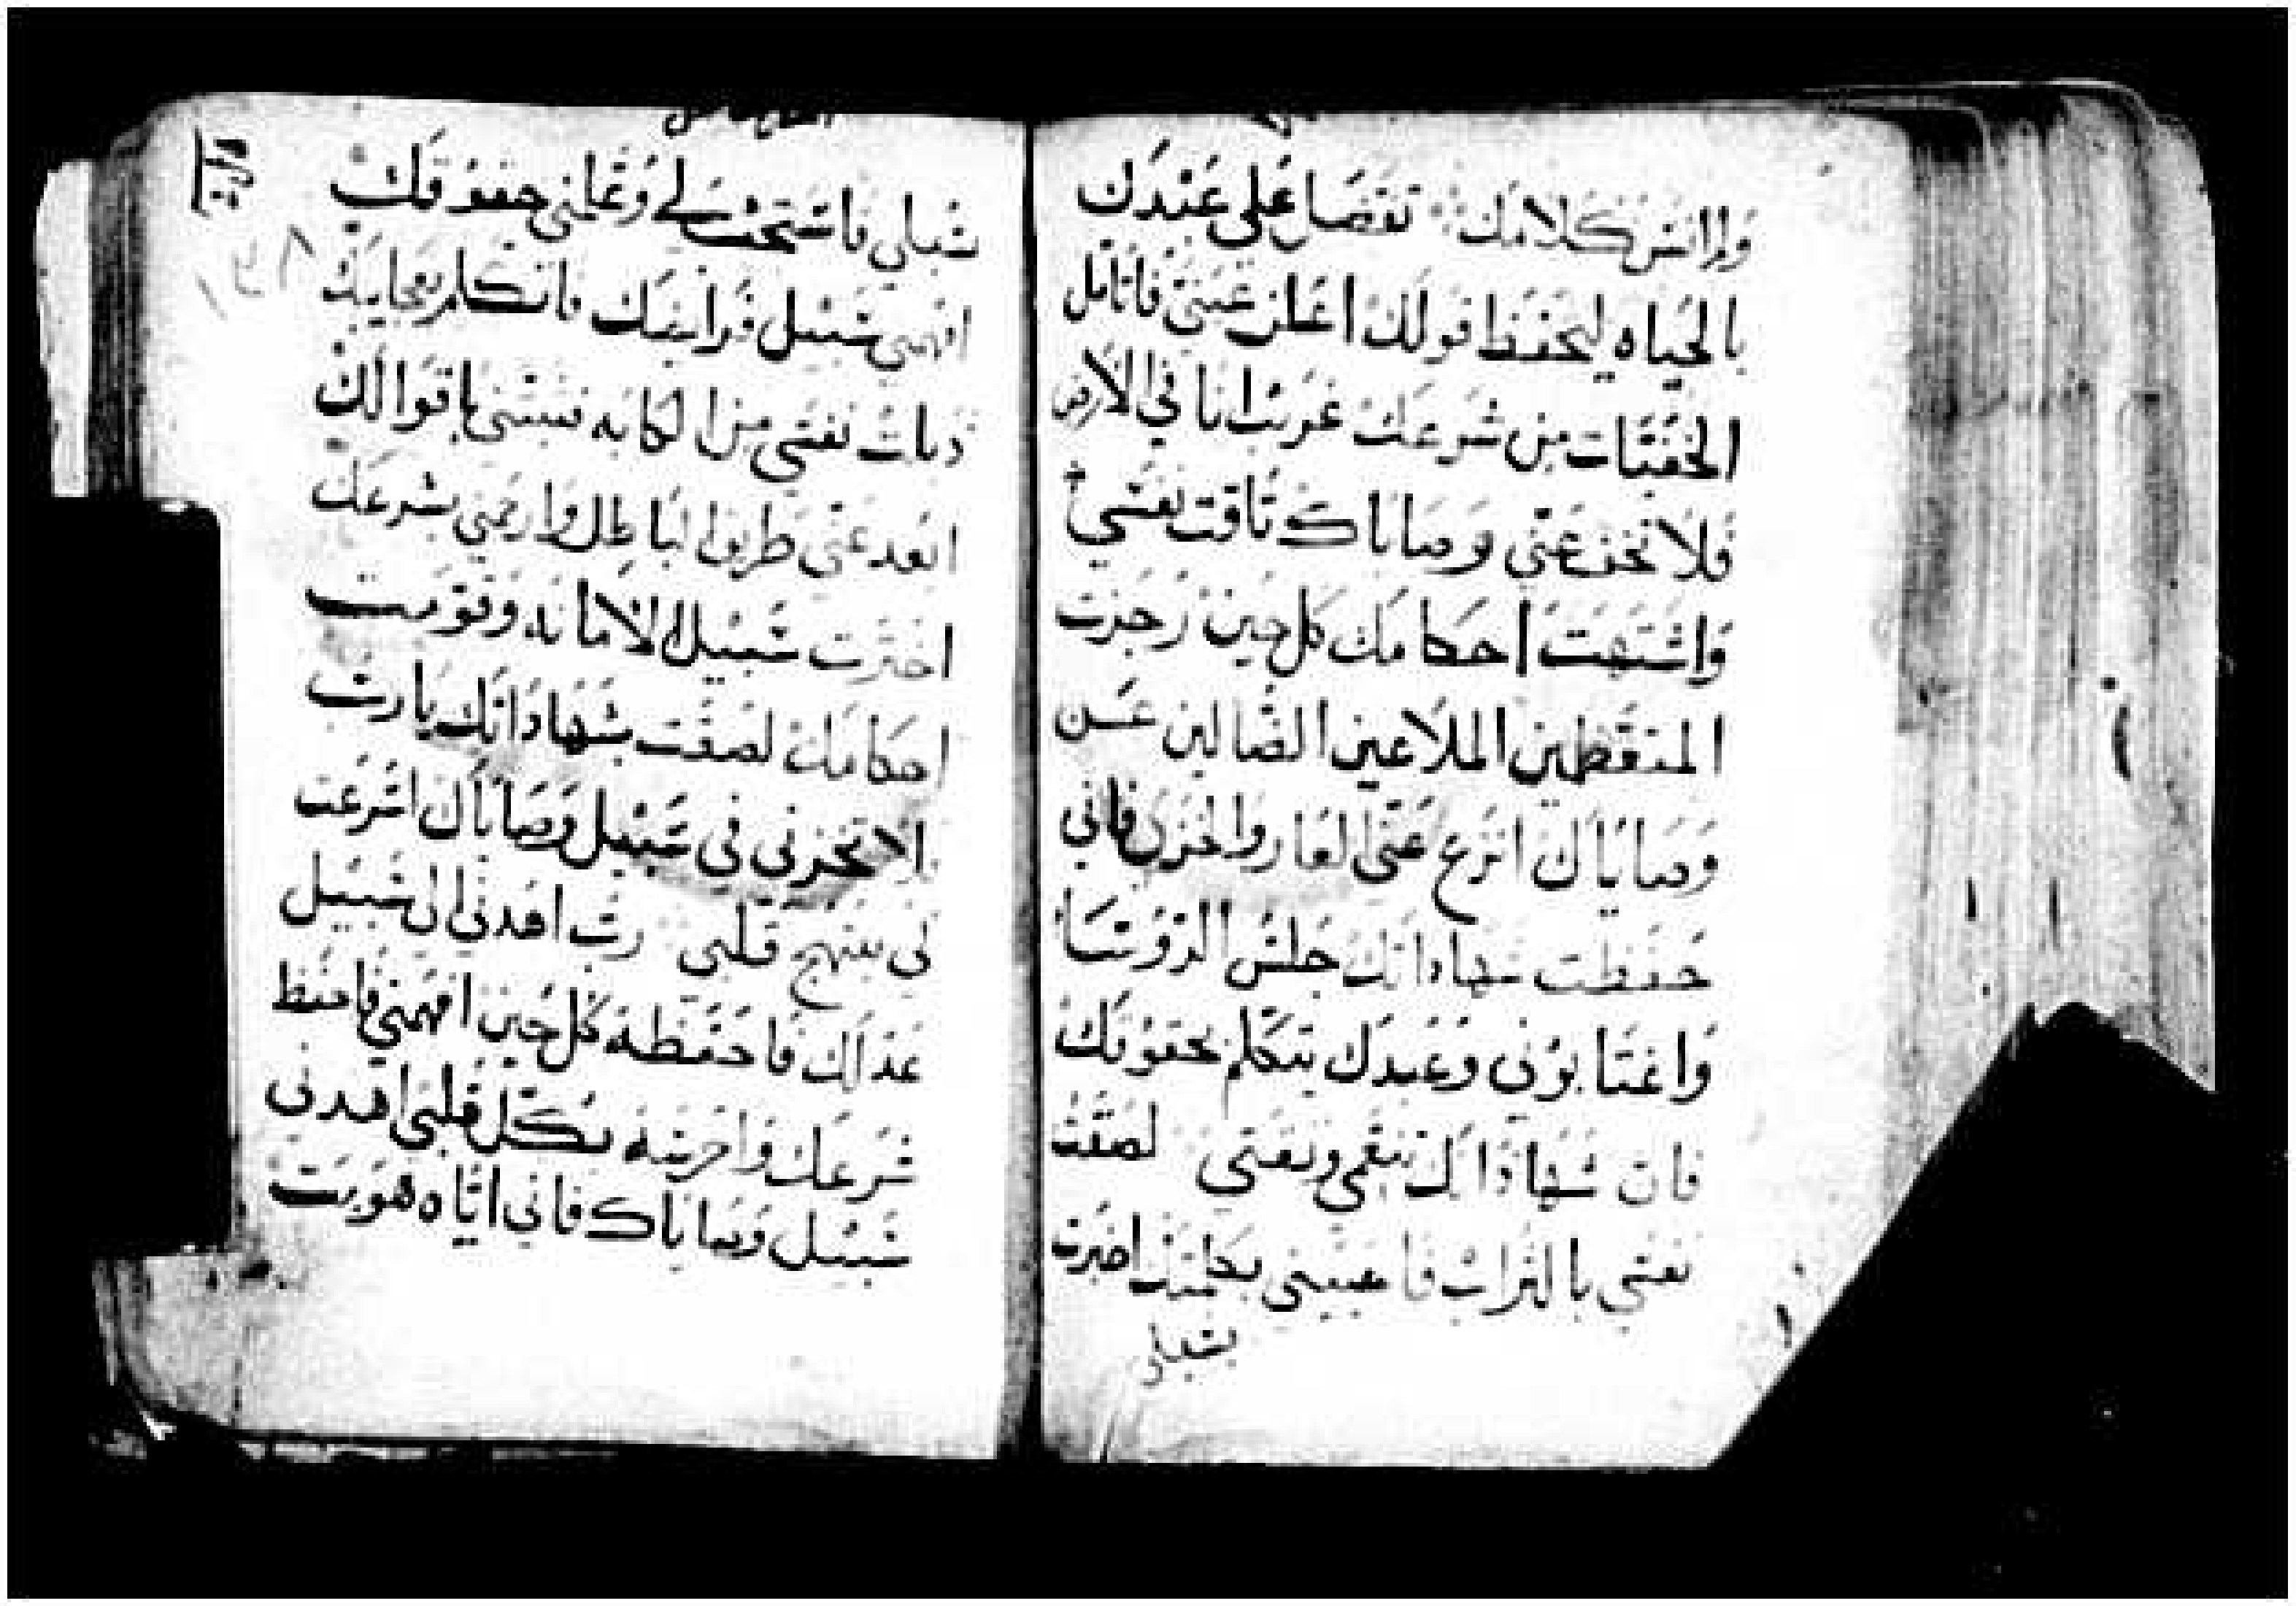 ولا انسى كلامك تفضل على عبدك
بالحياه ليحفظ قولك اعلن عيني فاتامل
الخفيات من شرعك غريب انا في الارض
فلا تخف عني وصاياك تاقت نفسي
واشتهت احكامك كل حين زجرت
المتعظمين الملاعين الضالين عن
وصاياك انزع عني العار والخزي فاني
حفظت شهاداتك جلس الروسا
واغتابوني وعبدك يتكلم بحقوقك
فان شهاداتك نعمي ونفسي لصقت
نفسي بالتراب فاحييني بكلمتك اخبرت
بسبلي
سبلي فاستجبت لي وعلمني حقوقك
افهمني سبيل فرايضك فاتكلم بعجايبك
ذبلت نفسي من الكابه ثبتني باقوالك
ابعد عني طريق الباطل وارحمني بشرعك
اخترت سبيل الامانه وقومت
احكامك لصقت بشهاداتك يا رب
لا تخزني في سبيل وصاياك اسرعت
لي يبتهج قلبي رب اهدني الى سبيل
عدلك فاحفظه كل حين افهمني فاحفظ
شرعك واحرسه بكل قلبي اهدني
سبيل وصاياك فاني اياه هويت